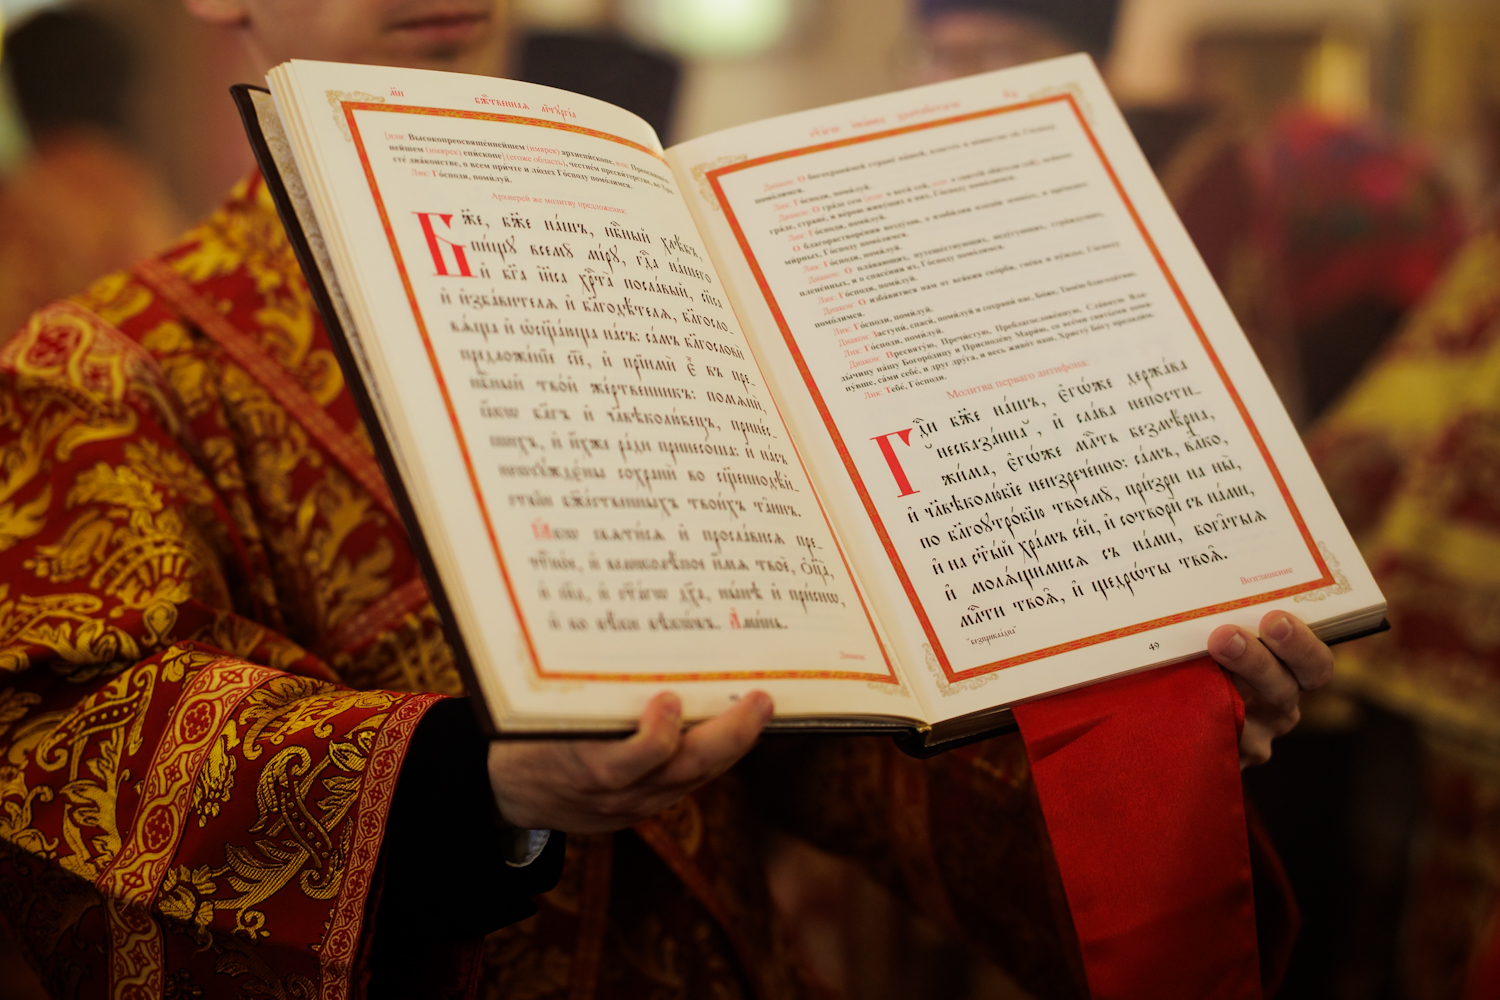 мп҃ бж҃ственнаѧ лїтꙋргі́а
[или: Высокопреосвяще́ннейшем (имярек) архиепи́скопе, или: Преосвяще́н-
нейшем (имярек) епи́скопе] (егоже область), честне́м пресви́терстве, во Хри-
сте́ диа́констве, о всем при́чте и лю́дех Го́споду помо́лимся.
Лик: Го́споди, поми́луй.
Архиерей же молитву предложения:
Бж҃е, бж҃е на́шъ, нб҃ный хлѣ́бъ,
пи́щꙋ всемꙋ̀ мі́рꙋ, гд҃а на́шего
и҆ бг҃а і҆и҃са хр҃та̀ посла́вый, сп҃са
и҆ и҆зба́вителѧ и҆ благодѣ́телѧ, блгⷭ҇ло-
вѧ́ща и҆ ѡ҆сщ҃а́юща на́съ: са́мъ блгⷭ҇ловѝ
предложе́нїе сїѐ, и҆ прїимѝ є҆̀ въ пре-
нб҃ный тво́й же́ртвенникъ: помѧнѝ,
ꙗ҆́кѡ бл҃гъ и҆ чл҃вѣколю́бецъ, прине́с-
шихъ, и҆ и҆́хже ра́ди принесо́ша: и҆ на́съ
неѡсꙋжде́ны сохранѝ во сщ҃еннодѣ́й-
ствїи бж҃е́ственныхъ твои́хъ та́инъ.
Ꙗ҆́кѡ ст҃и́сѧ и҆ просла́висѧ пре-
чⷭ҇тно́е и҆ великолѣ́пое и҆́мѧ твоѐ, ѻ҆ц҃а̀,
и҆ сн҃а, и҆ ст҃а́гѡ дх҃а, ны́нѣ и҆ при́снѡ,
и҆ во вѣ́ки вѣкѡ́въ. А҆ми́нь.
Диакон:
Диакон: О богохрани́мей стране́ на́шей, власте́х и во́инстве ея́, Го́споду
помо́лимся.
Лик: Го́споди, поми́луй.
Диакон: О гра́де сем [или: о ве́си сей, или: о святе́й оби́тели сей], вся́ком
гра́де, стране́, и ве́рою живу́щих в них, Го́споду помо́лимся.
Лик: Го́споди, поми́луй.
О благорастворе́нии возду́хов, о изоби́лии плодо́в земны́х, и вре́менех
ми́рных, Го́споду помо́лимся.
Лик: Го́споди, поми́луй.
Диакон: О пла́вающих, путеше́ствующих, неду́гующих, стра́ждущих,
плене́нных, и о спасе́нии их, Го́споду помо́лимся.
Лик: Го́споди, поми́луй.
Диакон: О изба́витися нам от вся́кия ско́рби, гне́ва и ну́жды, Го́споду
помо́лимся.
Лик: Го́споди, поми́луй.
Диакон: Заступи́, спаси́, поми́луй и сохрани́ нас, Бо́же, Твое́ю благода́тию.
Лик: Го́споди, поми́луй.
Диакон: Пресвяту́ю, Пречи́стую, Преблагослове́нную, Сла́вную Вла-
ды́чицу на́шу Богоро́дицу и Присноде́ву Мари́ю, со все́ми святы́ми помя-
ну́вше, са́ми себе́, и друг дру́га, и весь живо́т наш, Христу́ Бо́гу предади́м.
Лик: Тебе́, Го́споди.
Молитва перваго антифона:
Гдⷭ҇и бж҃е на́шъ, є҆гѡ́же держа́ва
несказа́нна, и҆ сла́ва непости-
жи́ма, є҆гѡ́же мл҃ть безмѣ́рна,
и҆ чл҃вѣколю́бїе неизрече́нно: са́мъ, влⷣко,
по бл҃гоꙋтро́бїю твоемꙋ̀, при́зри на ны̀,
и҆ на ст҃ы́й хра́мъ се́й, и҆ сотворѝ съ на́ми,
и҆ молѧ́щимисѧ съ на́ми, бога́тыѧ
мл҃ти твоѧ̑, и҆ щедрѡ́ты твоѧ̑.
Возглашение
49